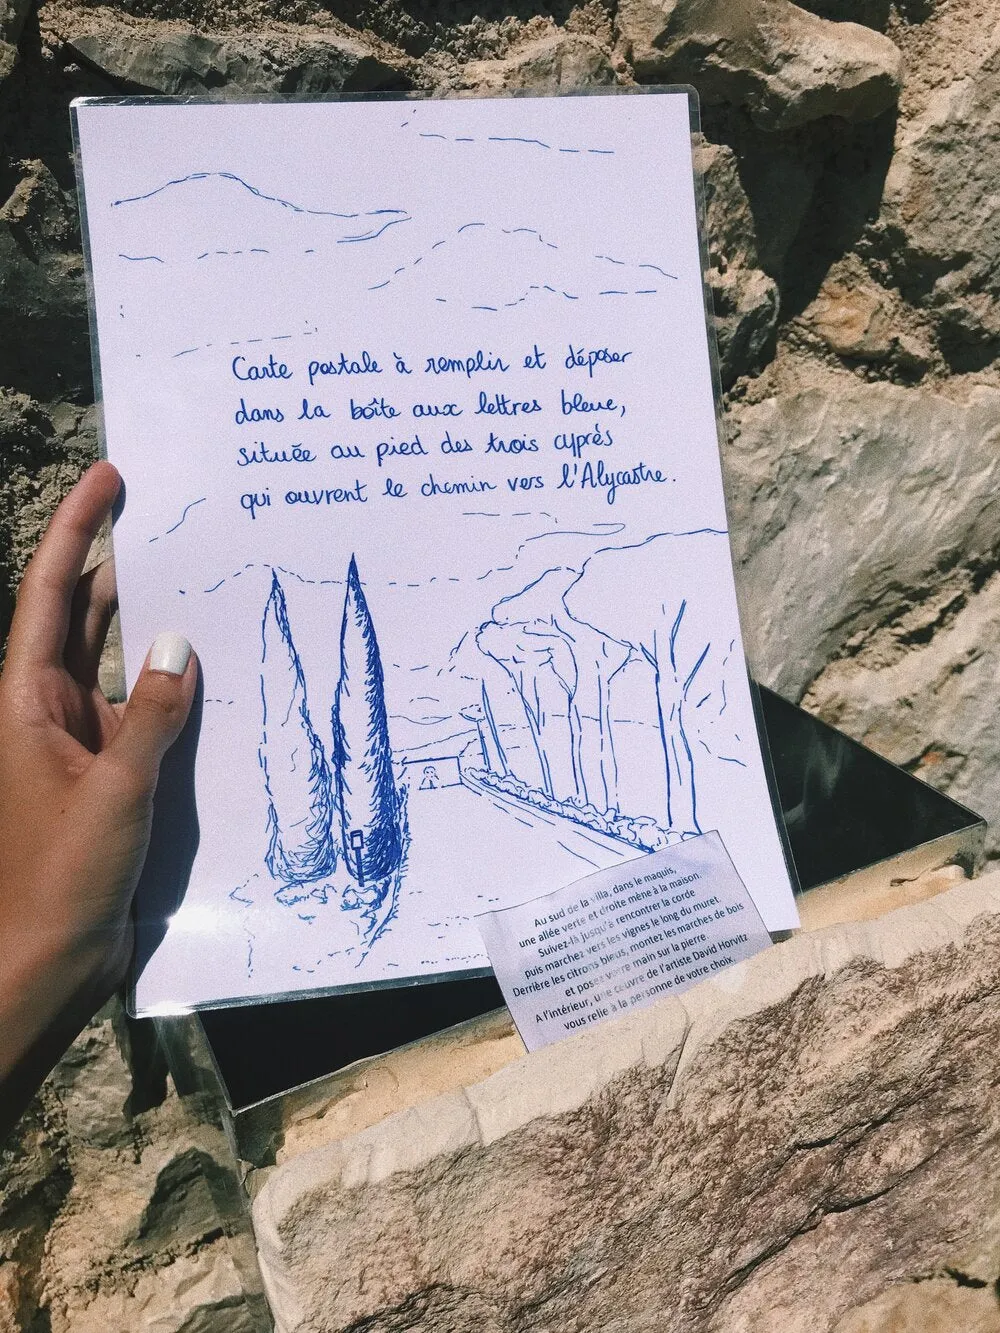 Carte postale à remplir et déposer
dans la boîte aux lettres bleue,
située au pied des trois cyprés
qui ouvrent le chemin vers l'Alycastre.
Au sud de la villa, dans le maquis,
une allée verte et droite mène à la maison.
Suivez-là jusqu'à rencontrer la corde
puis marchez vers les vignes le long du muret.
Derrière les citrons bleus, montez les marches de bois
et posez votre main sur la pierre.
A l'intérieur, une œuvre de l'artiste David Horvitz
vous relie à la personne de votre choix.